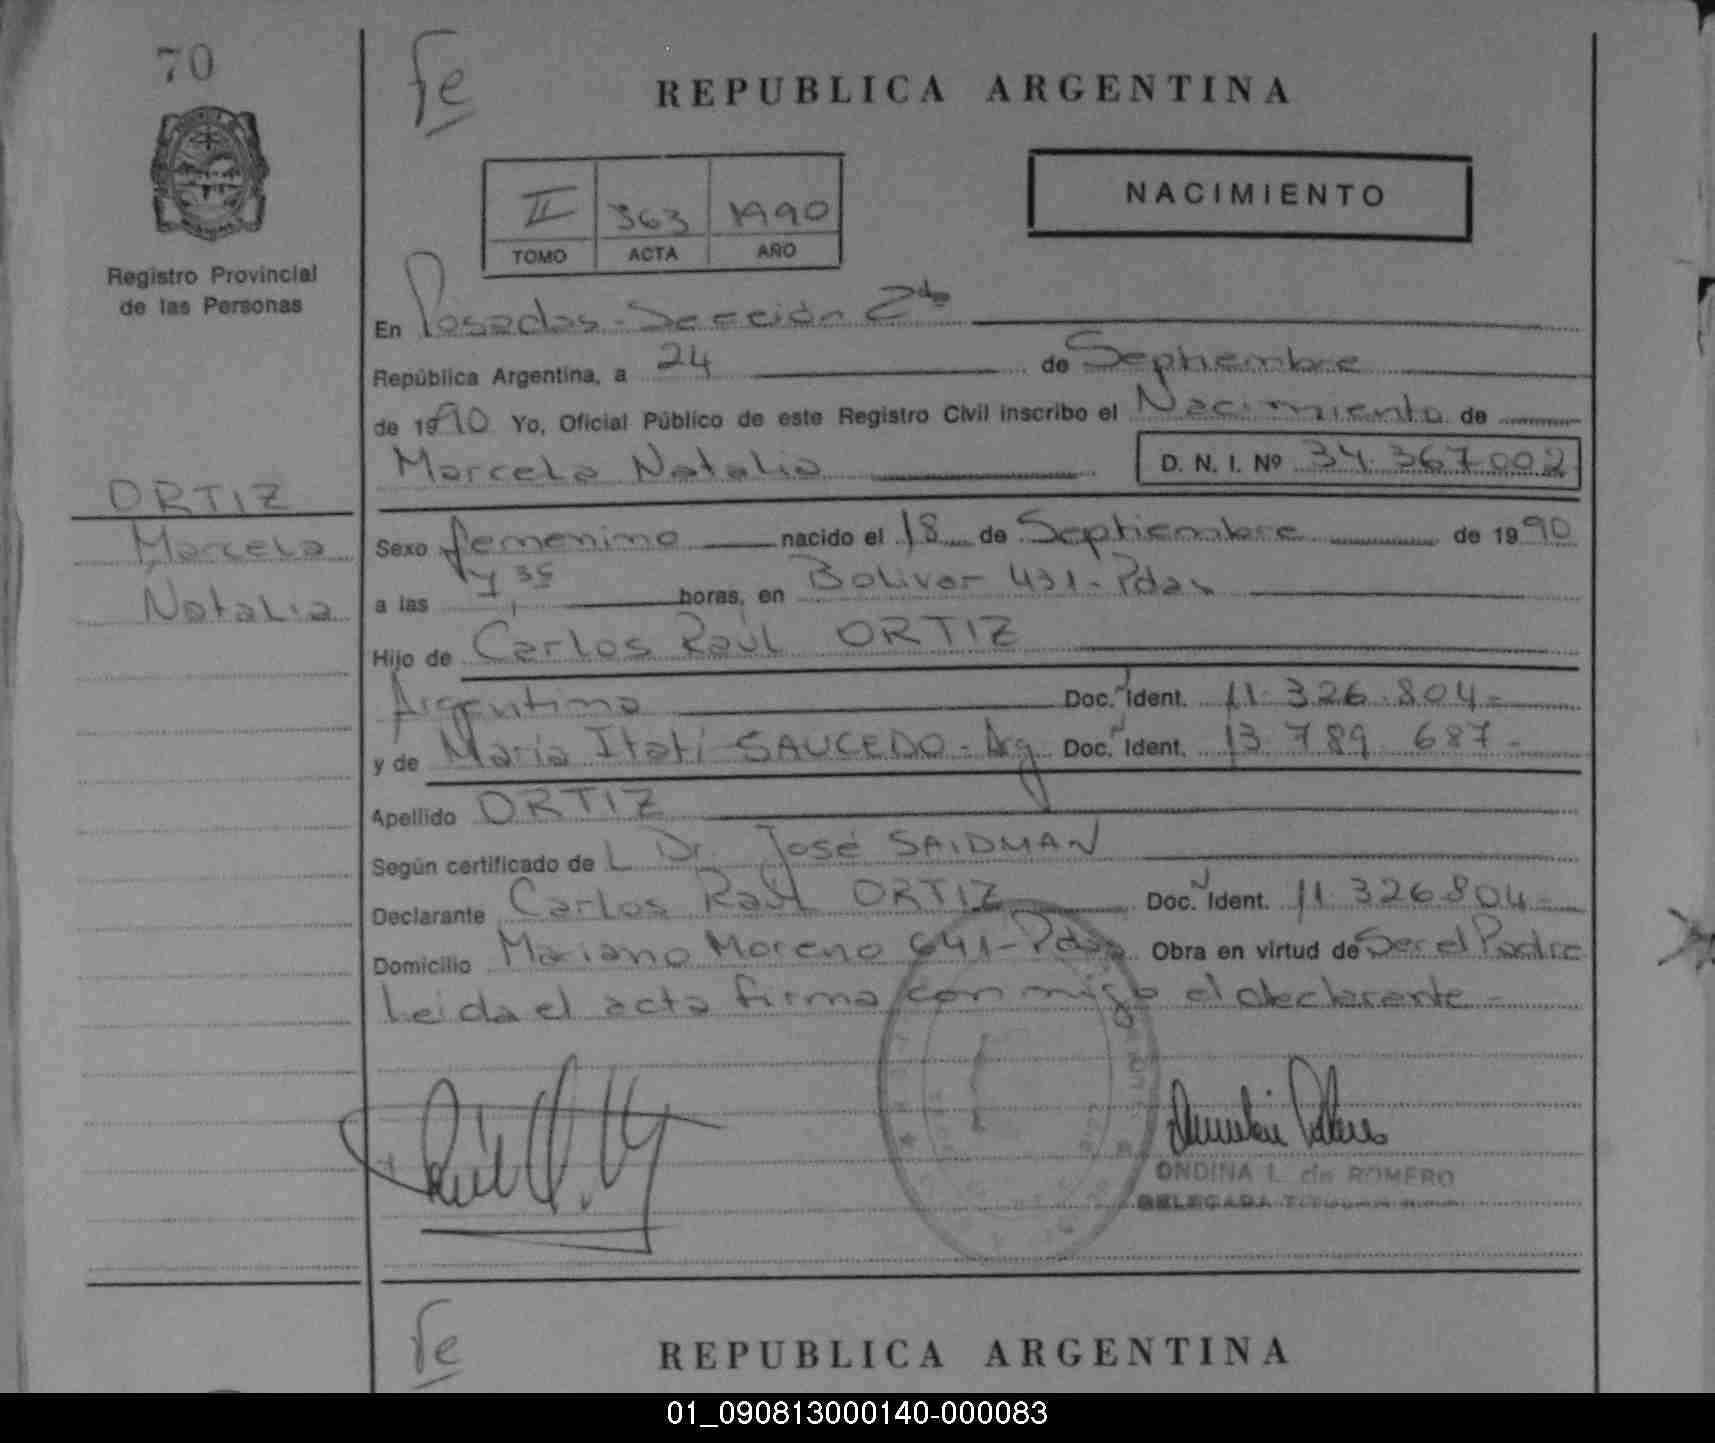 70
fe
REPUBLICA ARGENTINA
NACIMIENTO
II 363 1990
TOMO ACTA AÑO
Registro Provincial
de las Personas
En Posadas - Sección 2da
República Argentina, a 24 de Septiembre
de 1990 Yo, Oficial Público de este Registro Civil inscribo el Nacimiento de
Marcela Natalia D. N. I. Nº 34.367.002
ORTIZ
Marcela
Natalia
Sexo femenino nacido el 18 de Septiembre de 1990
a las 35 horas, en Bolivar 431 - Pdas
Hijo de Carlos Raúl ORTIZ
Argentino Doc. Ident. 11.326.804-
y de María Itatí SAUCEDO - Arg Doc. Ident. 13.789.687-
Apellido ORTIZ
Según certificado de L Dr. José SAIDMAN
Declarante Carlos Raúl ORTIZ Doc. Ident. 11.326.804-
Domicilio Mariano Moreno 641 - Pdas Obra en virtud de Ser el Padre
Leida el acta firma con migo el declarante -
ONDINA L. de ROMERO
DELEGADA TITULAR
fe
REPUBLICA ARGENTINA
01_090813000140-000083